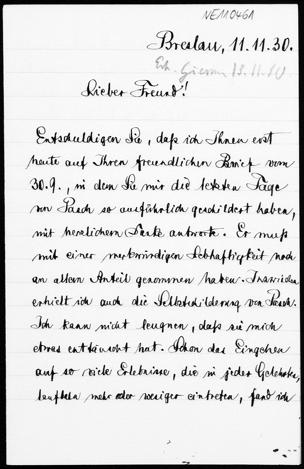 NE110461
Breslau, 11.11.30.
Erh. Giessen 13.11.30
Lieber Freund!
Entschuldigen Sie, daß ich Ihnen erst
heute auf Ihren freundlichen Brief vom
30.9., in dem Sie mir die letzten Tage
von Pasch so ausführlich geschildert haben,
mit herzlichem Danke antworte. Er muß
mit einer merkwürdigen Lebhaftigkeit noch
an allem Anteil genommen haben. Inzwischen
erhielt ich auch die Selbstschilderung von Pasch.
Ich kann nicht leugnen, daß sie mich
etwas enttäuscht hat. Schon das Eingehen
auf so viele Erlebnisse, die in jeder Gelehrten-
laufbahn mehr oder weniger eintreten, fand ich